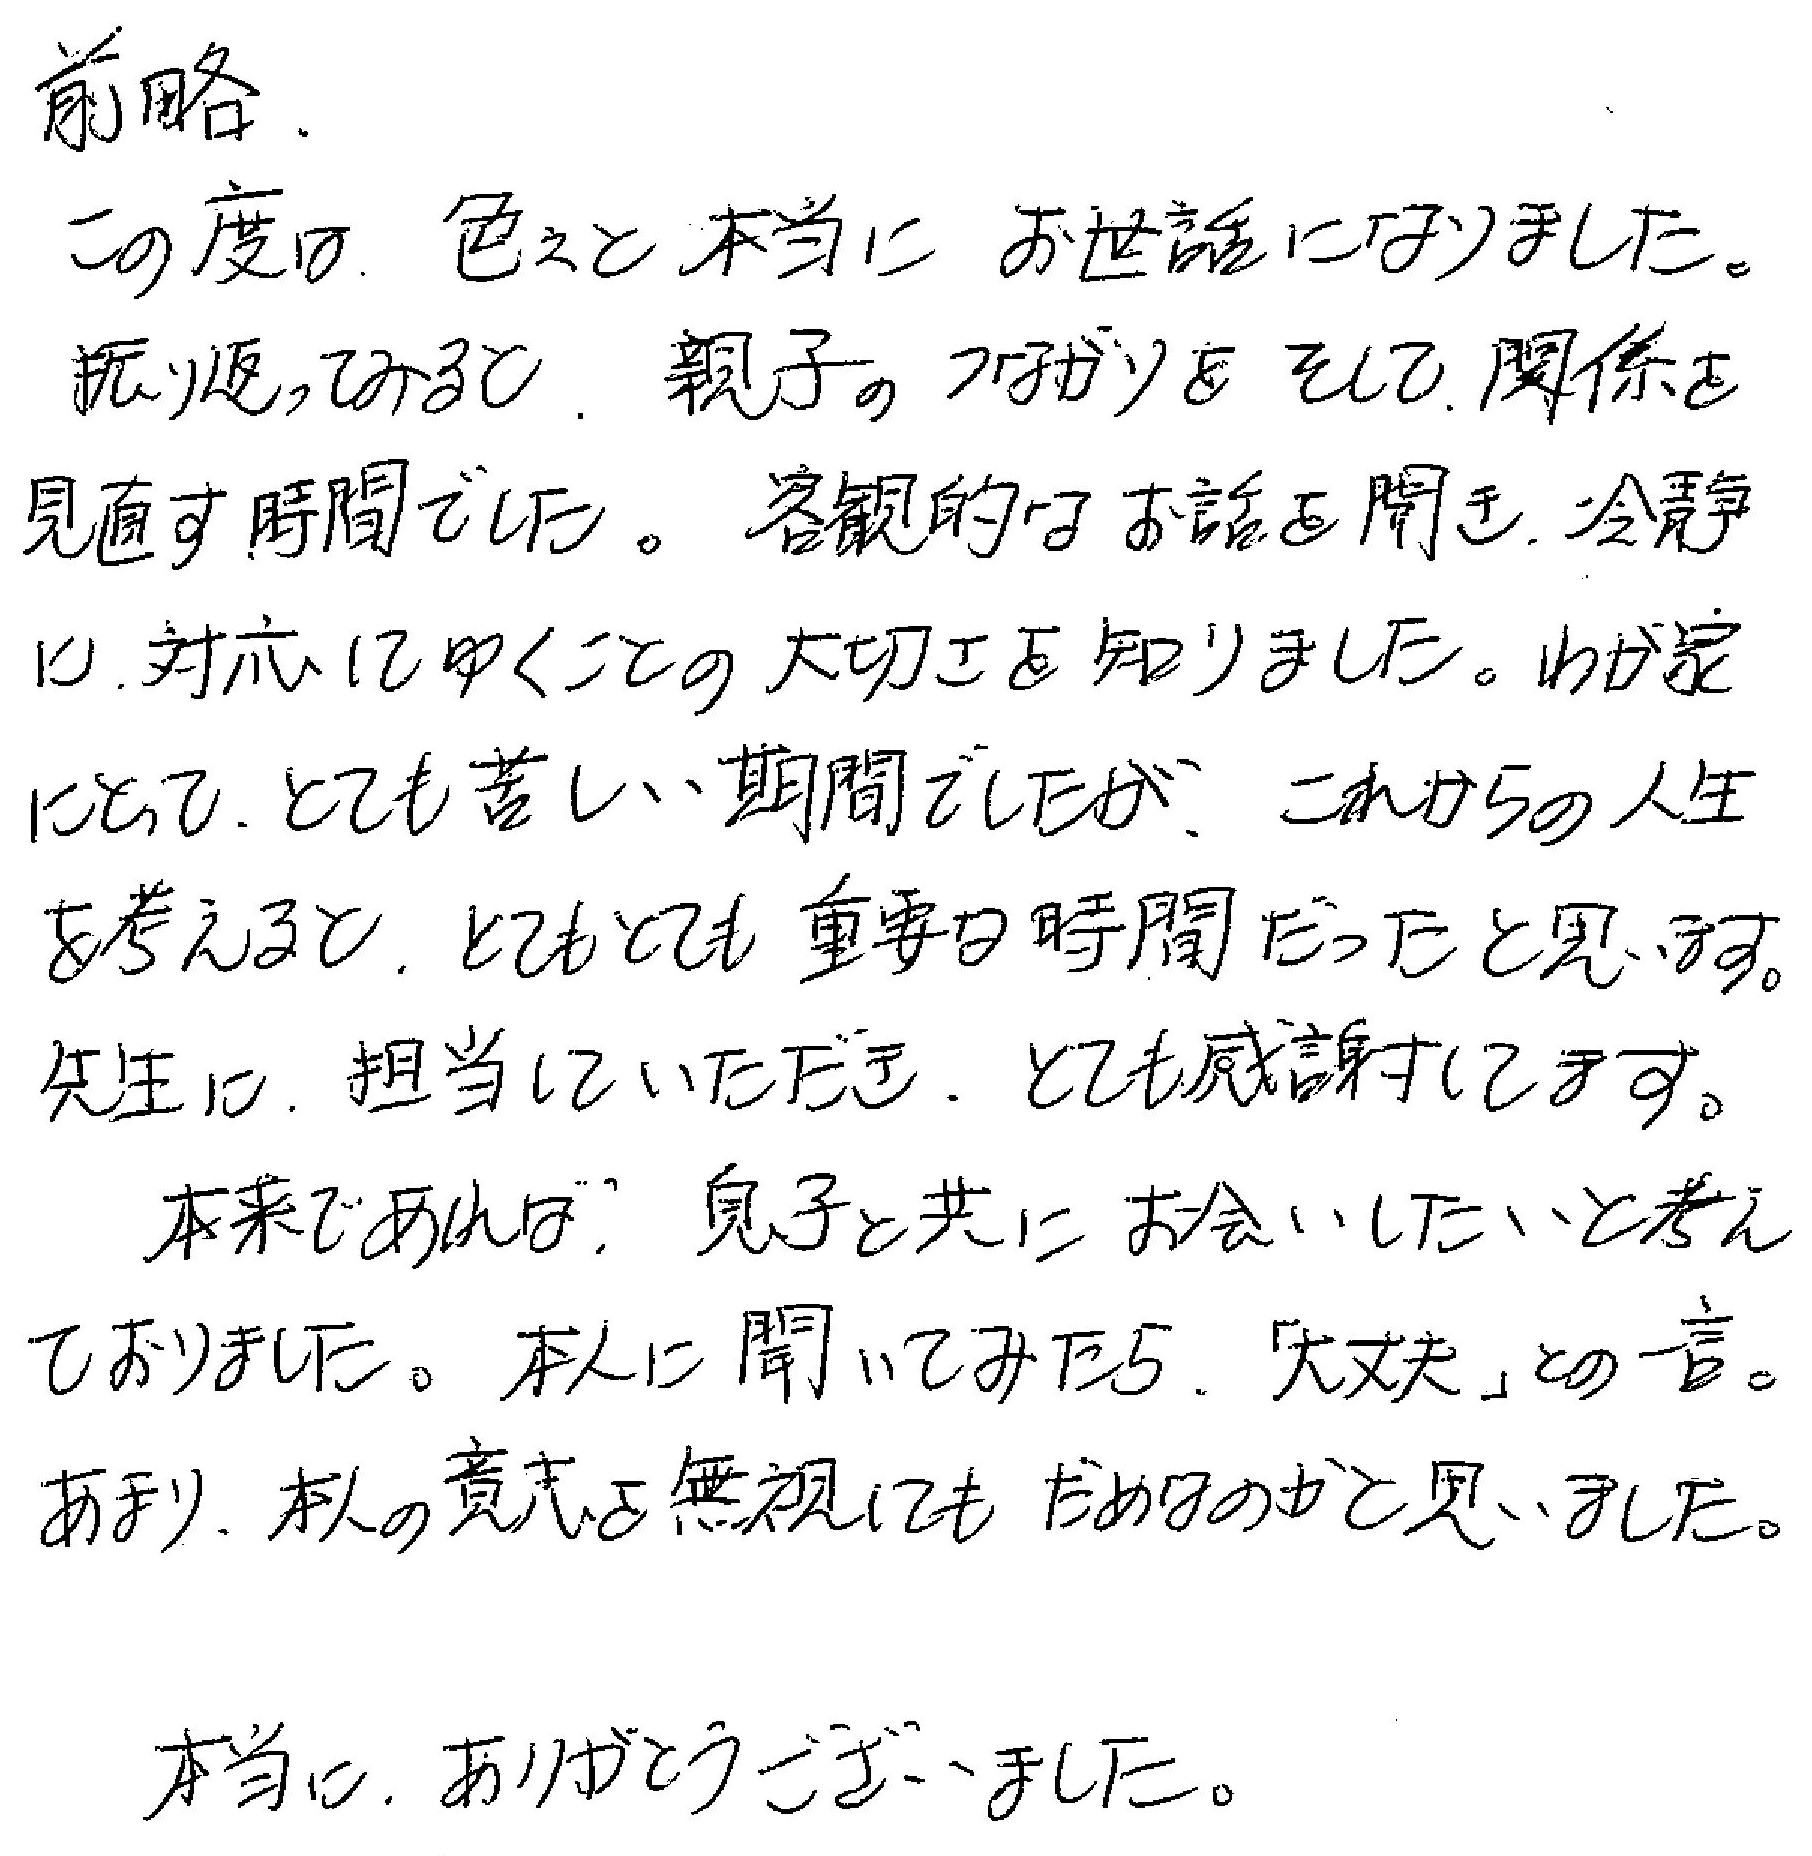 前略、
この度は、色々と本当に お世話になりました。
振り返ってみると、親子のつながりを そして、関係を
見直す時間でした。客観的なお話を聞き、冷静
に、対応してゆくことの大切さを知りました。わが家
にとって、とても苦しい期間でしたが、これからの人生
を考えると、とてもとても重要な時間だったと思います。
先生に、担当していただき、とても感謝してます。
本来であれば、息子と共にお会いしたいと考え
ておりました。本人に聞いてみたら、「大丈夫」との言。
あまり、本人の意志を無視してもだめなのかと思いました。
本当に、ありがとうございました。